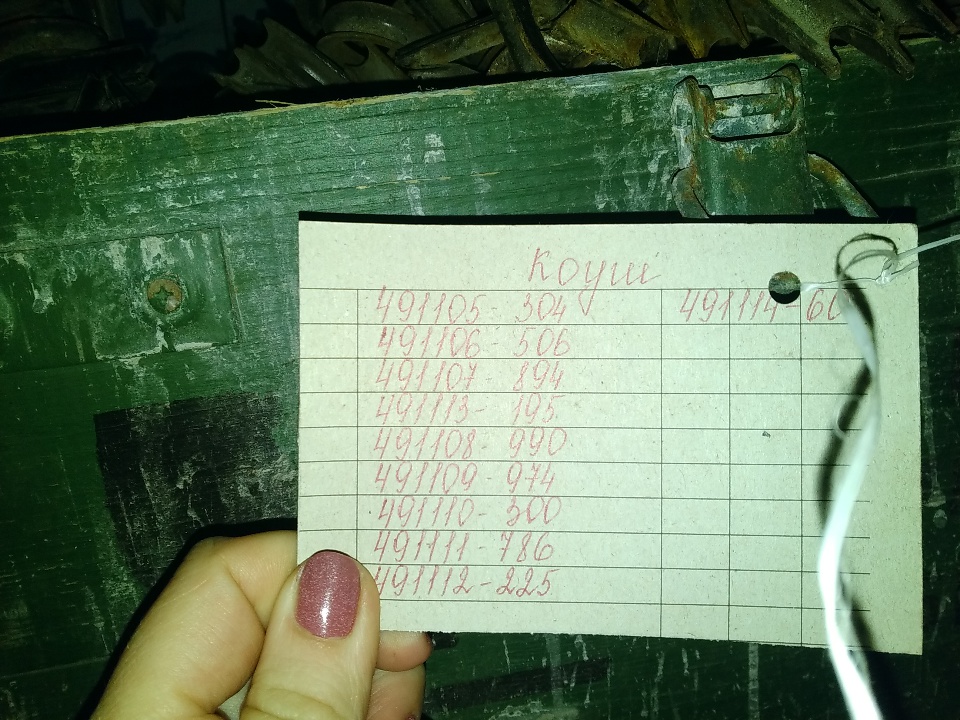 Коуш
491105- 304
491106- 506
491107- 894
491113- 195
491108- 990
491109- 974
491110- 300
491111- 786
491112-225
491114-60